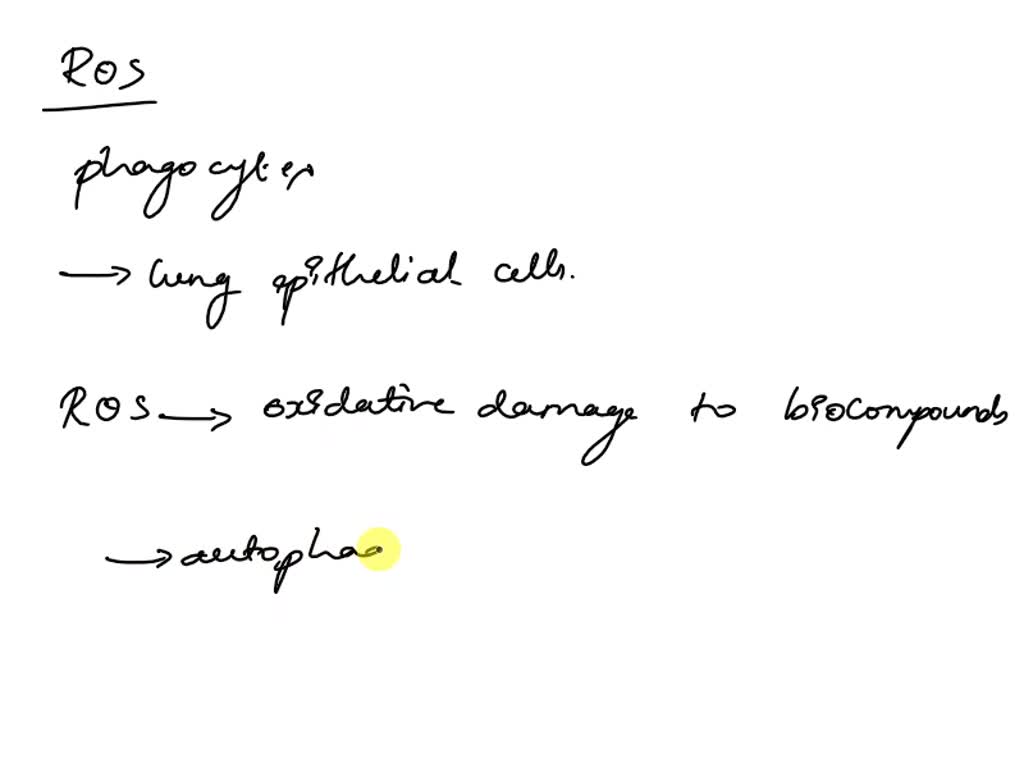 ROS
phagocytes
→ lung epithelial cells.
ROS → oxidative damage to biocompounds
→ autopha